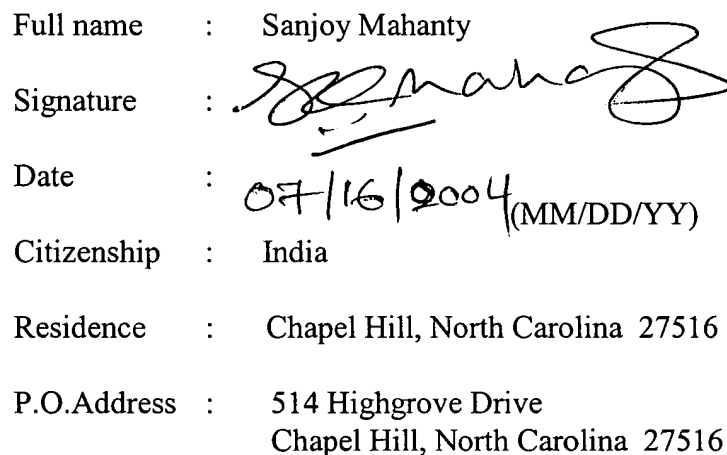 Full name : Sanjoy Mahanty
Signature :
Date : 07/16/2004 (MM/DD/YY)
Citizenship : India
Residence : Chapel Hill, North Carolina 27516
P.O.Address : 514 Highgrove Drive
Chapel Hill, North Carolina 27516